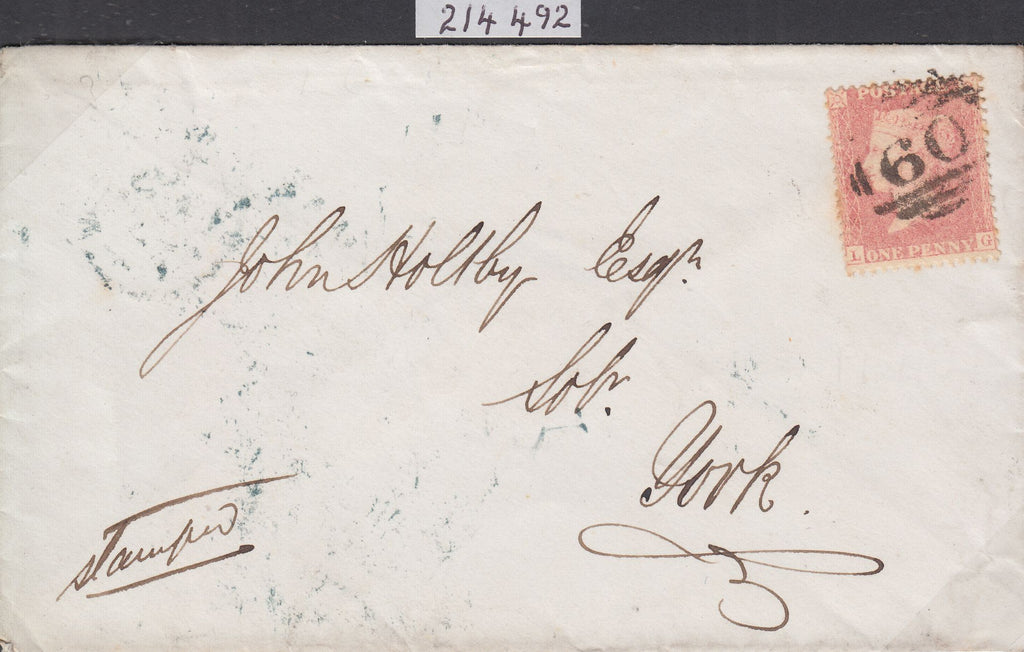 214 492
POST
60
L ONE PENNY G
John Holtby Esqr.
Solr.
York.
stamped